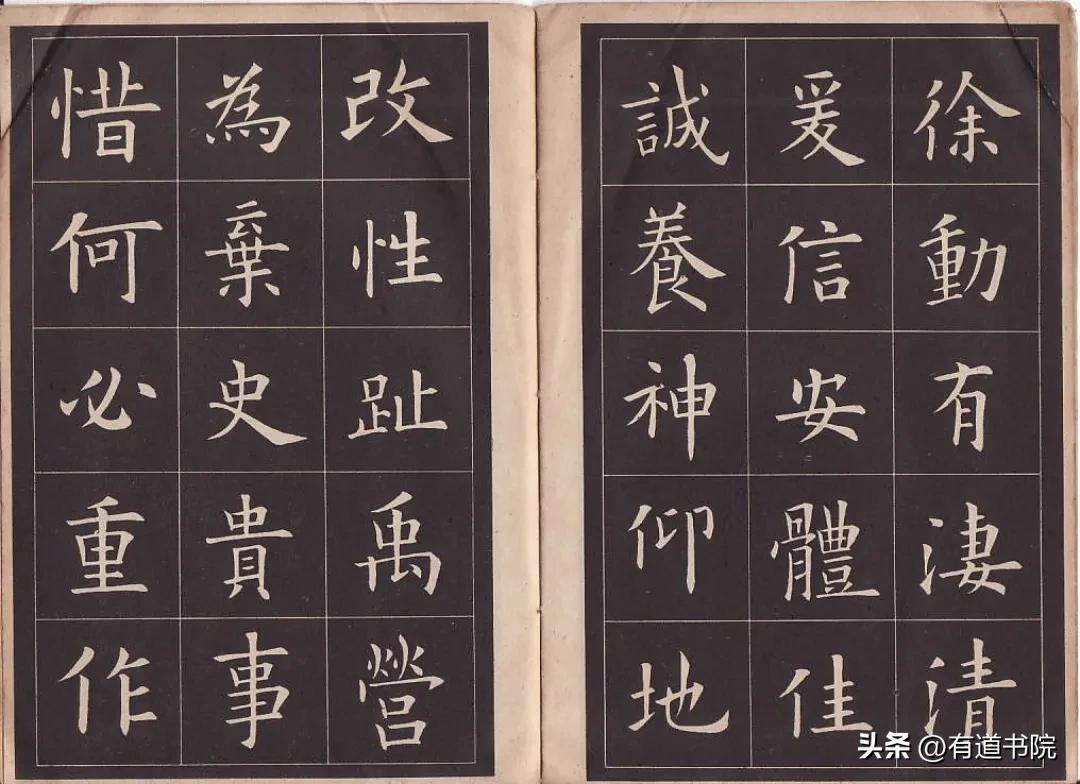 徐動有淒清
爰信安體佳
誠養神仰地
改性趾禹營
為棄史貴事
惜何必重作
头条 @有道书院